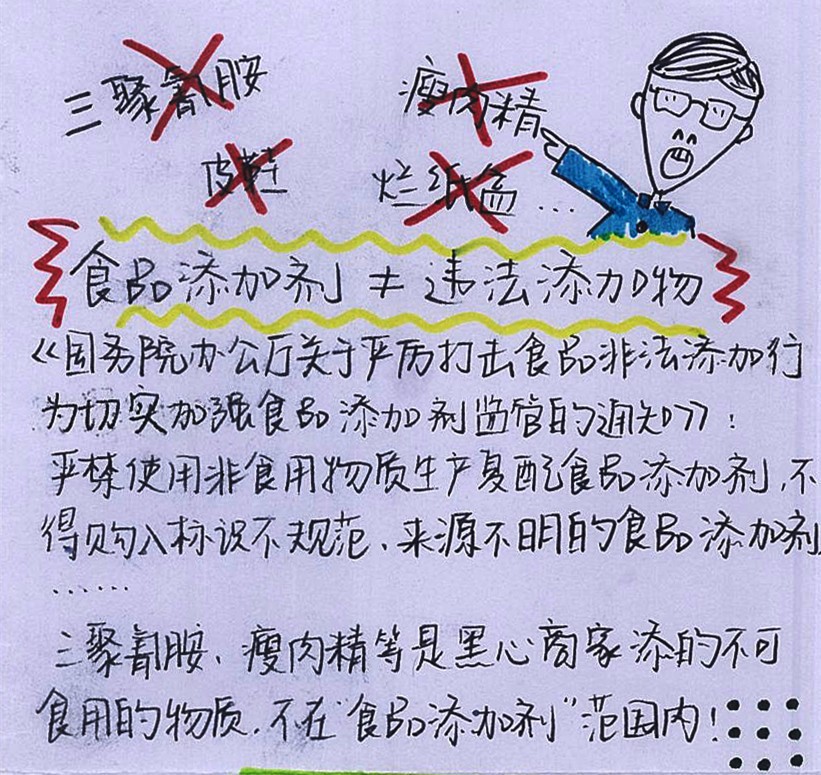 三聚氰胺
瘦肉精
皮鞋
烂纸盒…
食品添加剂≠违法添加物
《国务院办公厅关于严厉打击食品非法添加行
为切实加强食品添加剂监管的通知》：
严禁使用非食用物质生产复配食品添加剂,不
得购入标识不规范、来源不明的食品添加剂
……
三聚氰胺、瘦肉精等是黑心商家添的不可
食用的物质,不在"食品添加剂"范围内!